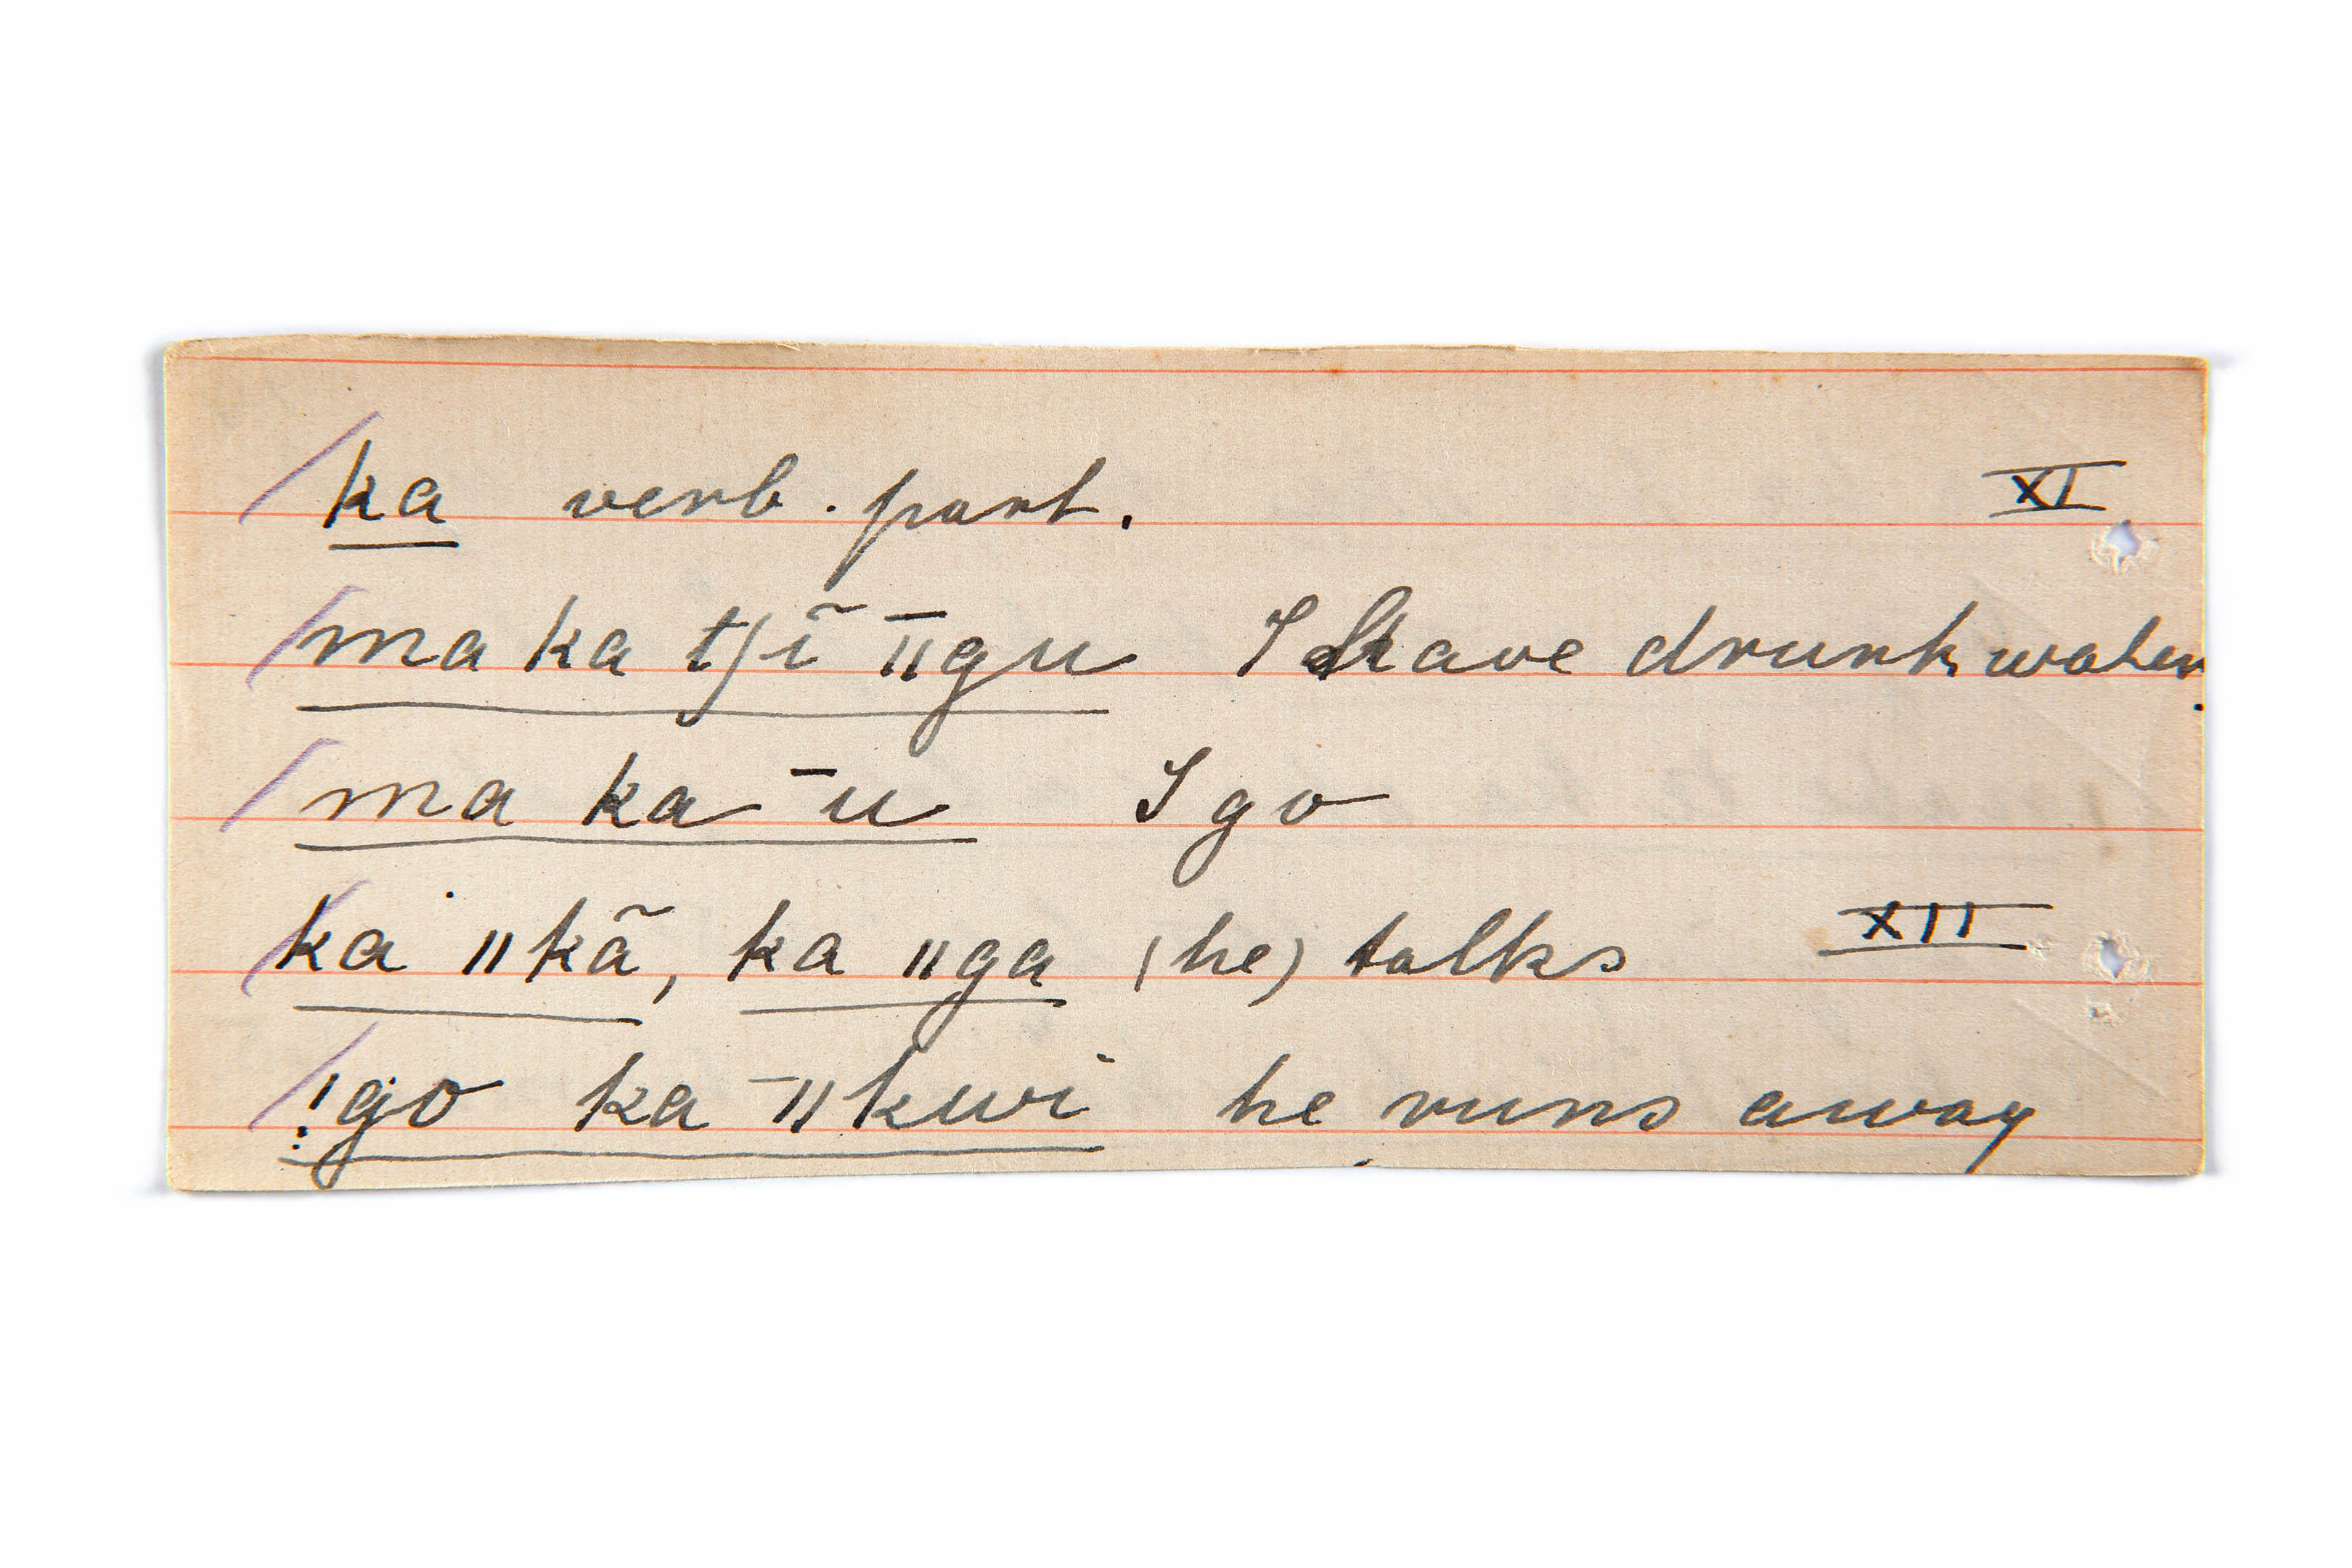 ka verb. part. XI
ma ka tʃĩ ‾ǁgu I have drunk water.
ma ka ‾u I go
ka ǁkã, ka ǁga (he) talks XII
!go ka ‾ǁkwi he runs away